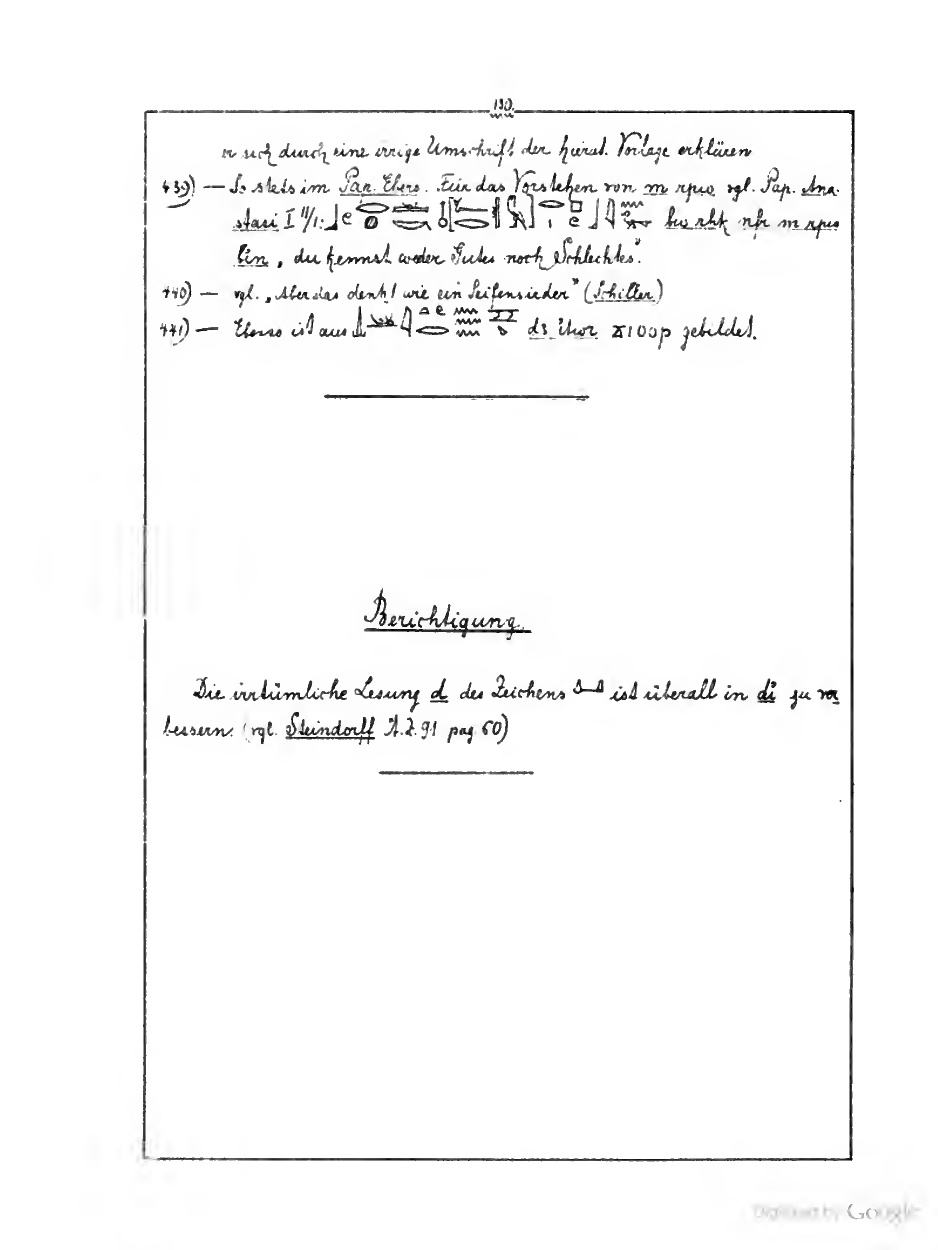 130.
er sich durch eine irrige Umschrift der hierat. Vorlage erklären
439) — So stets im Pap. Ebers. Für das Vorstehen von m rpw vgl. Pap. Ana-
stasi I 11/1: bw rḫk nfr m rpw
bin „du kennst weder Gutes noch Schlechtes".
440) — vgl. „Aber das denkt wie ein Seifensieder" (Schiller)
441) — Ebenso ist aus gebildet.
Berichtigung.
Die irrtümliche Lesung d des Zeichens ist überall in di zu ver
bessern. (vgl. Steindorff A.Z. 91 pag 60)
Digitized by Google